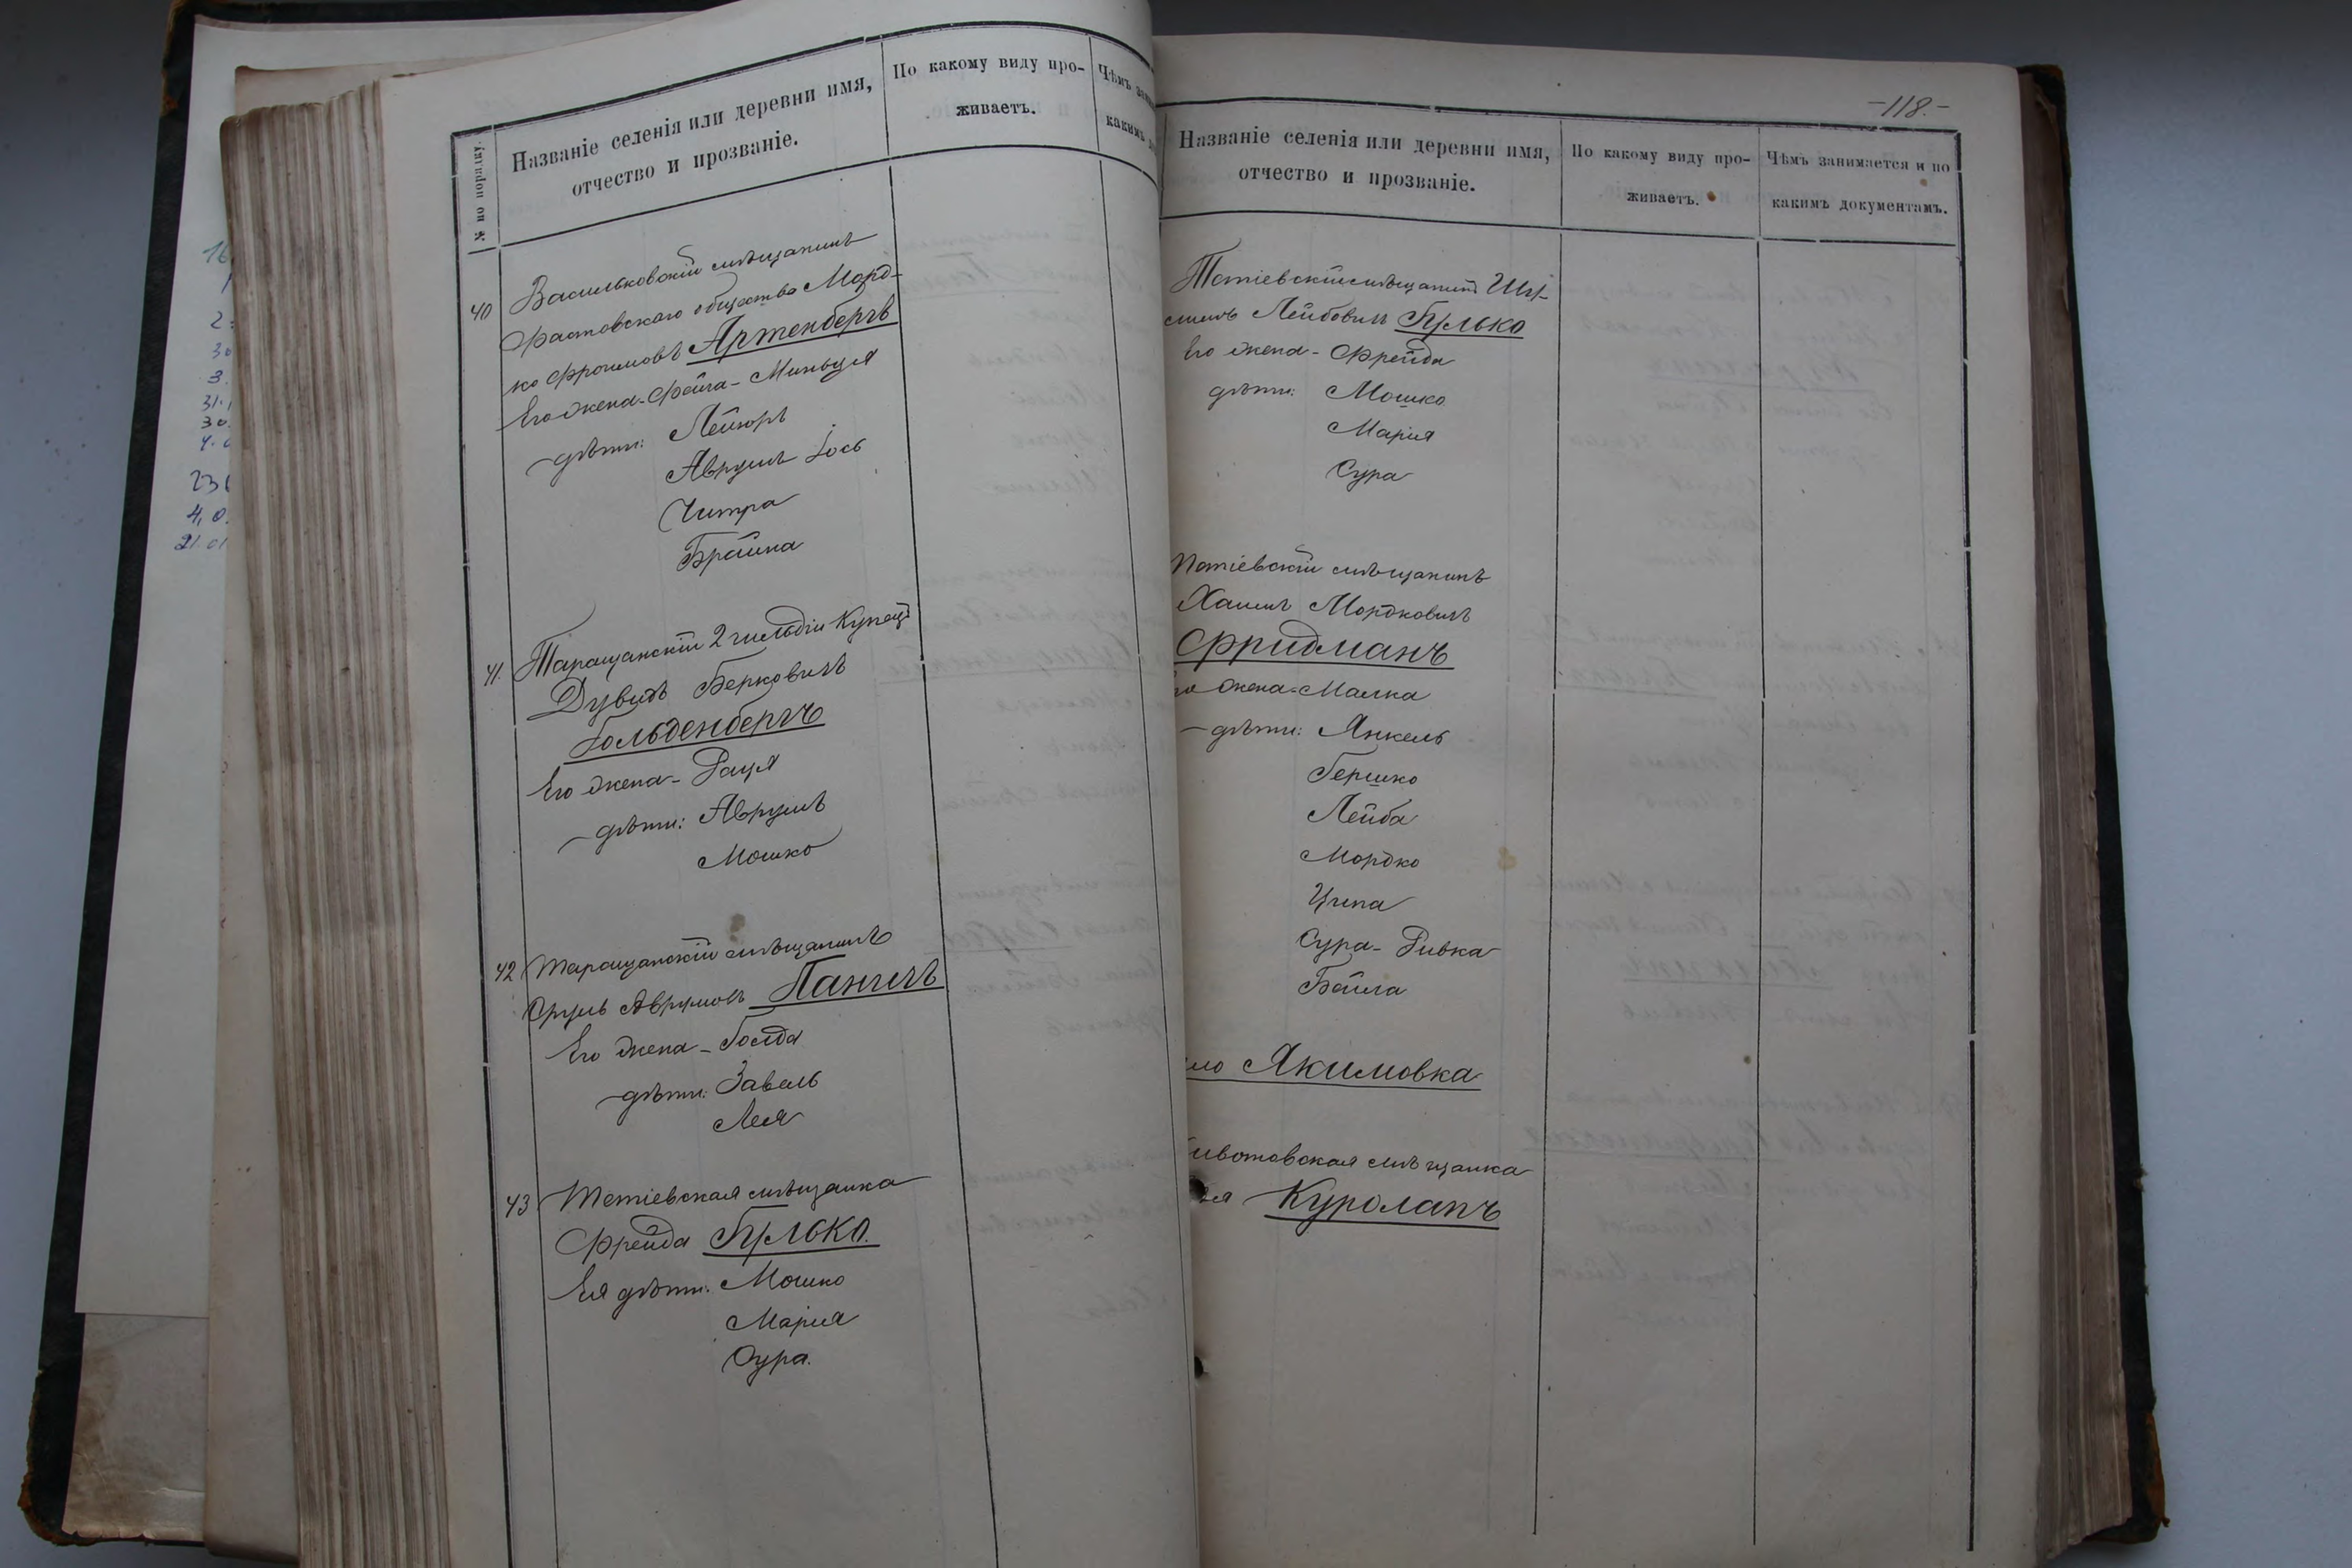 № по порядку.
Названіе селенія или деревни имя,
отчество и прозваніе.
По какому виду про-
живаетъ.
Чѣмъ
какимъ
40 Васильковскій мѣщанинъ
Фастовскаго общества Морд-
ко Фроимовъ Артенбергъ
Его жена - Фейга - Миньця
дѣти: Лейзоръ
Аврумъ Іось
Читра
Брайна
41. Таращанскій 2 гильдіи Купецъ
Дувидъ Берковичъ
Гольденбергъ
Его жена - Рация
дѣти: Аврумъ
Мошко
42 Таращанскій мѣщанинъ
Сруль Аврумовъ Паничъ
Его жена - Голда
дѣти: Завель
Лея
43 Тетіевская мѣщанка
Фрейда Булько.
Ея дѣти: Мошко
Марія
Сура.
-118.-
Названіе селенія или деревни имя,
отчество и прозваніе.
По какому виду про-
живаетъ.
Чѣмъ занимается и по
какимъ документамъ.
Тетіевскій мѣщанинъ
Лейбовичъ Булько
Его жена - Фрейда
дѣти: Мошко
Марія
Сура
Тетіевскій мѣщанинъ
Хаимъ Мордковичъ
Фридманъ
жена - Малка
дѣти: Янкель
Гершко
Лейба
Мордко
Ципа
Сура - Ривка
Бейла
ло Якимовка
ивотовская мѣщанка
Куролапъ